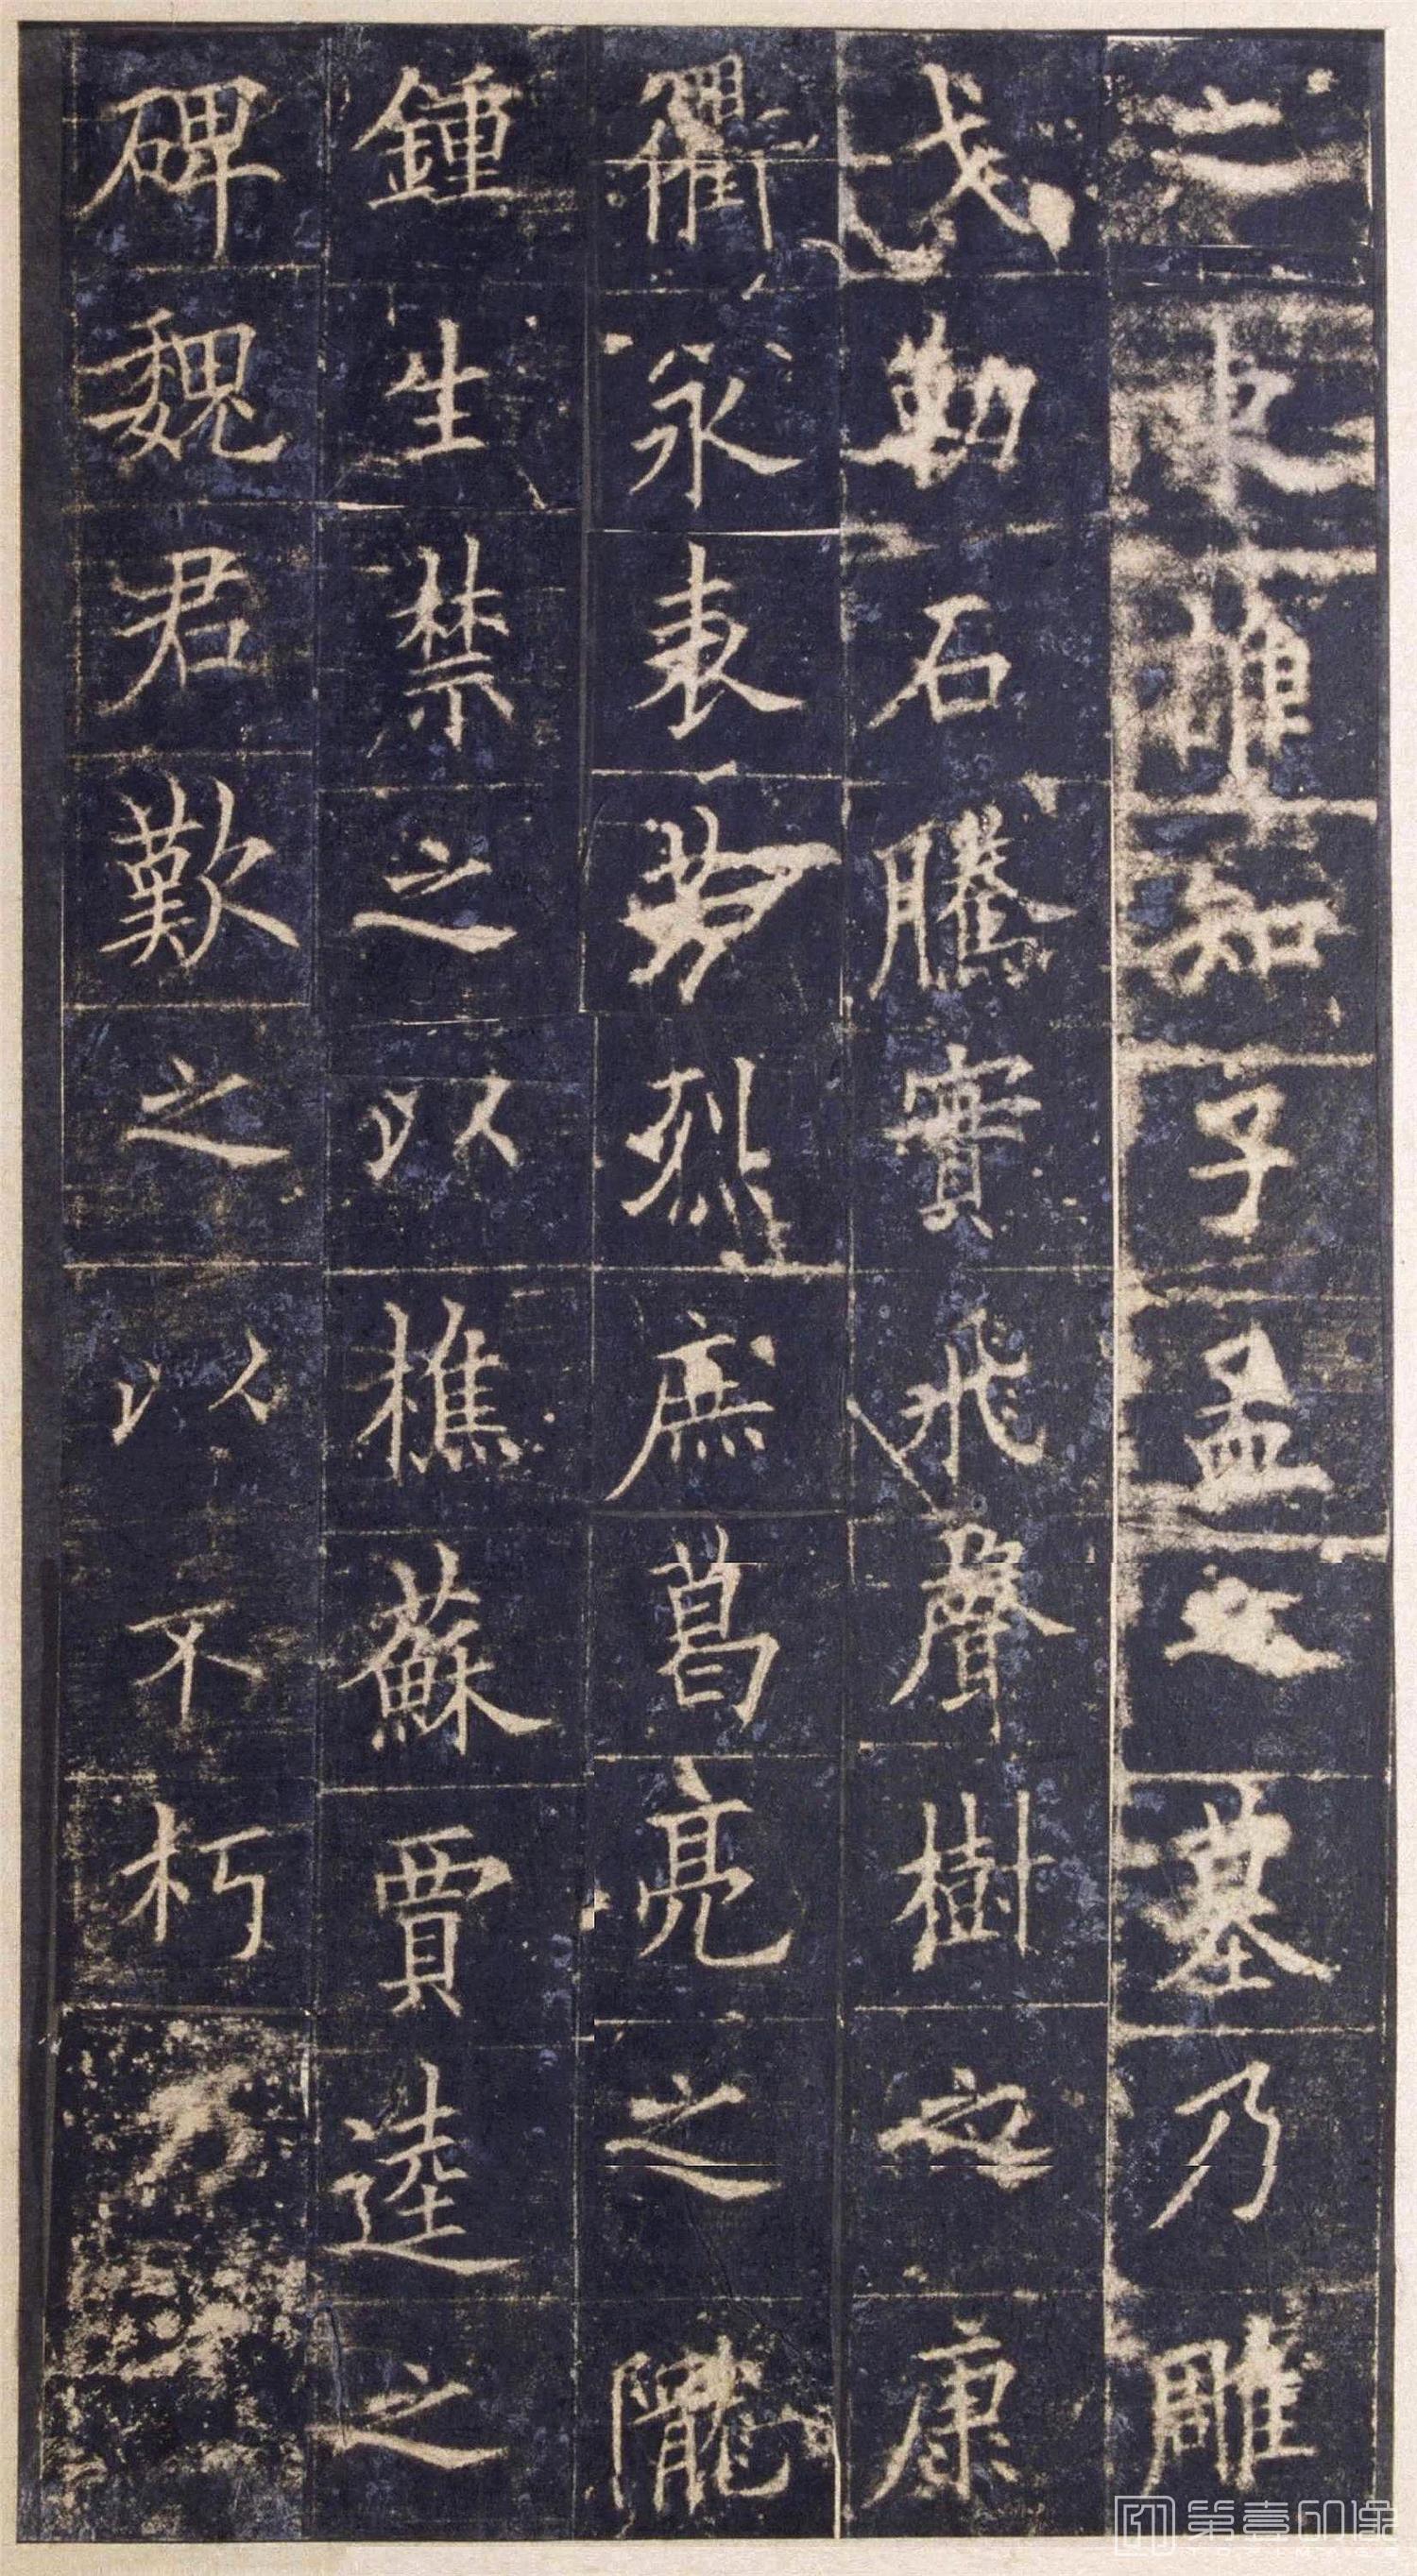 之東誰知子孟之墓乃雕
戈勒石騰實飛聲樹之康
衢永表芳烈庶葛亮之隴
鍾生禁之以樵蘇賈逵之
碑魏君歎之以不朽乃